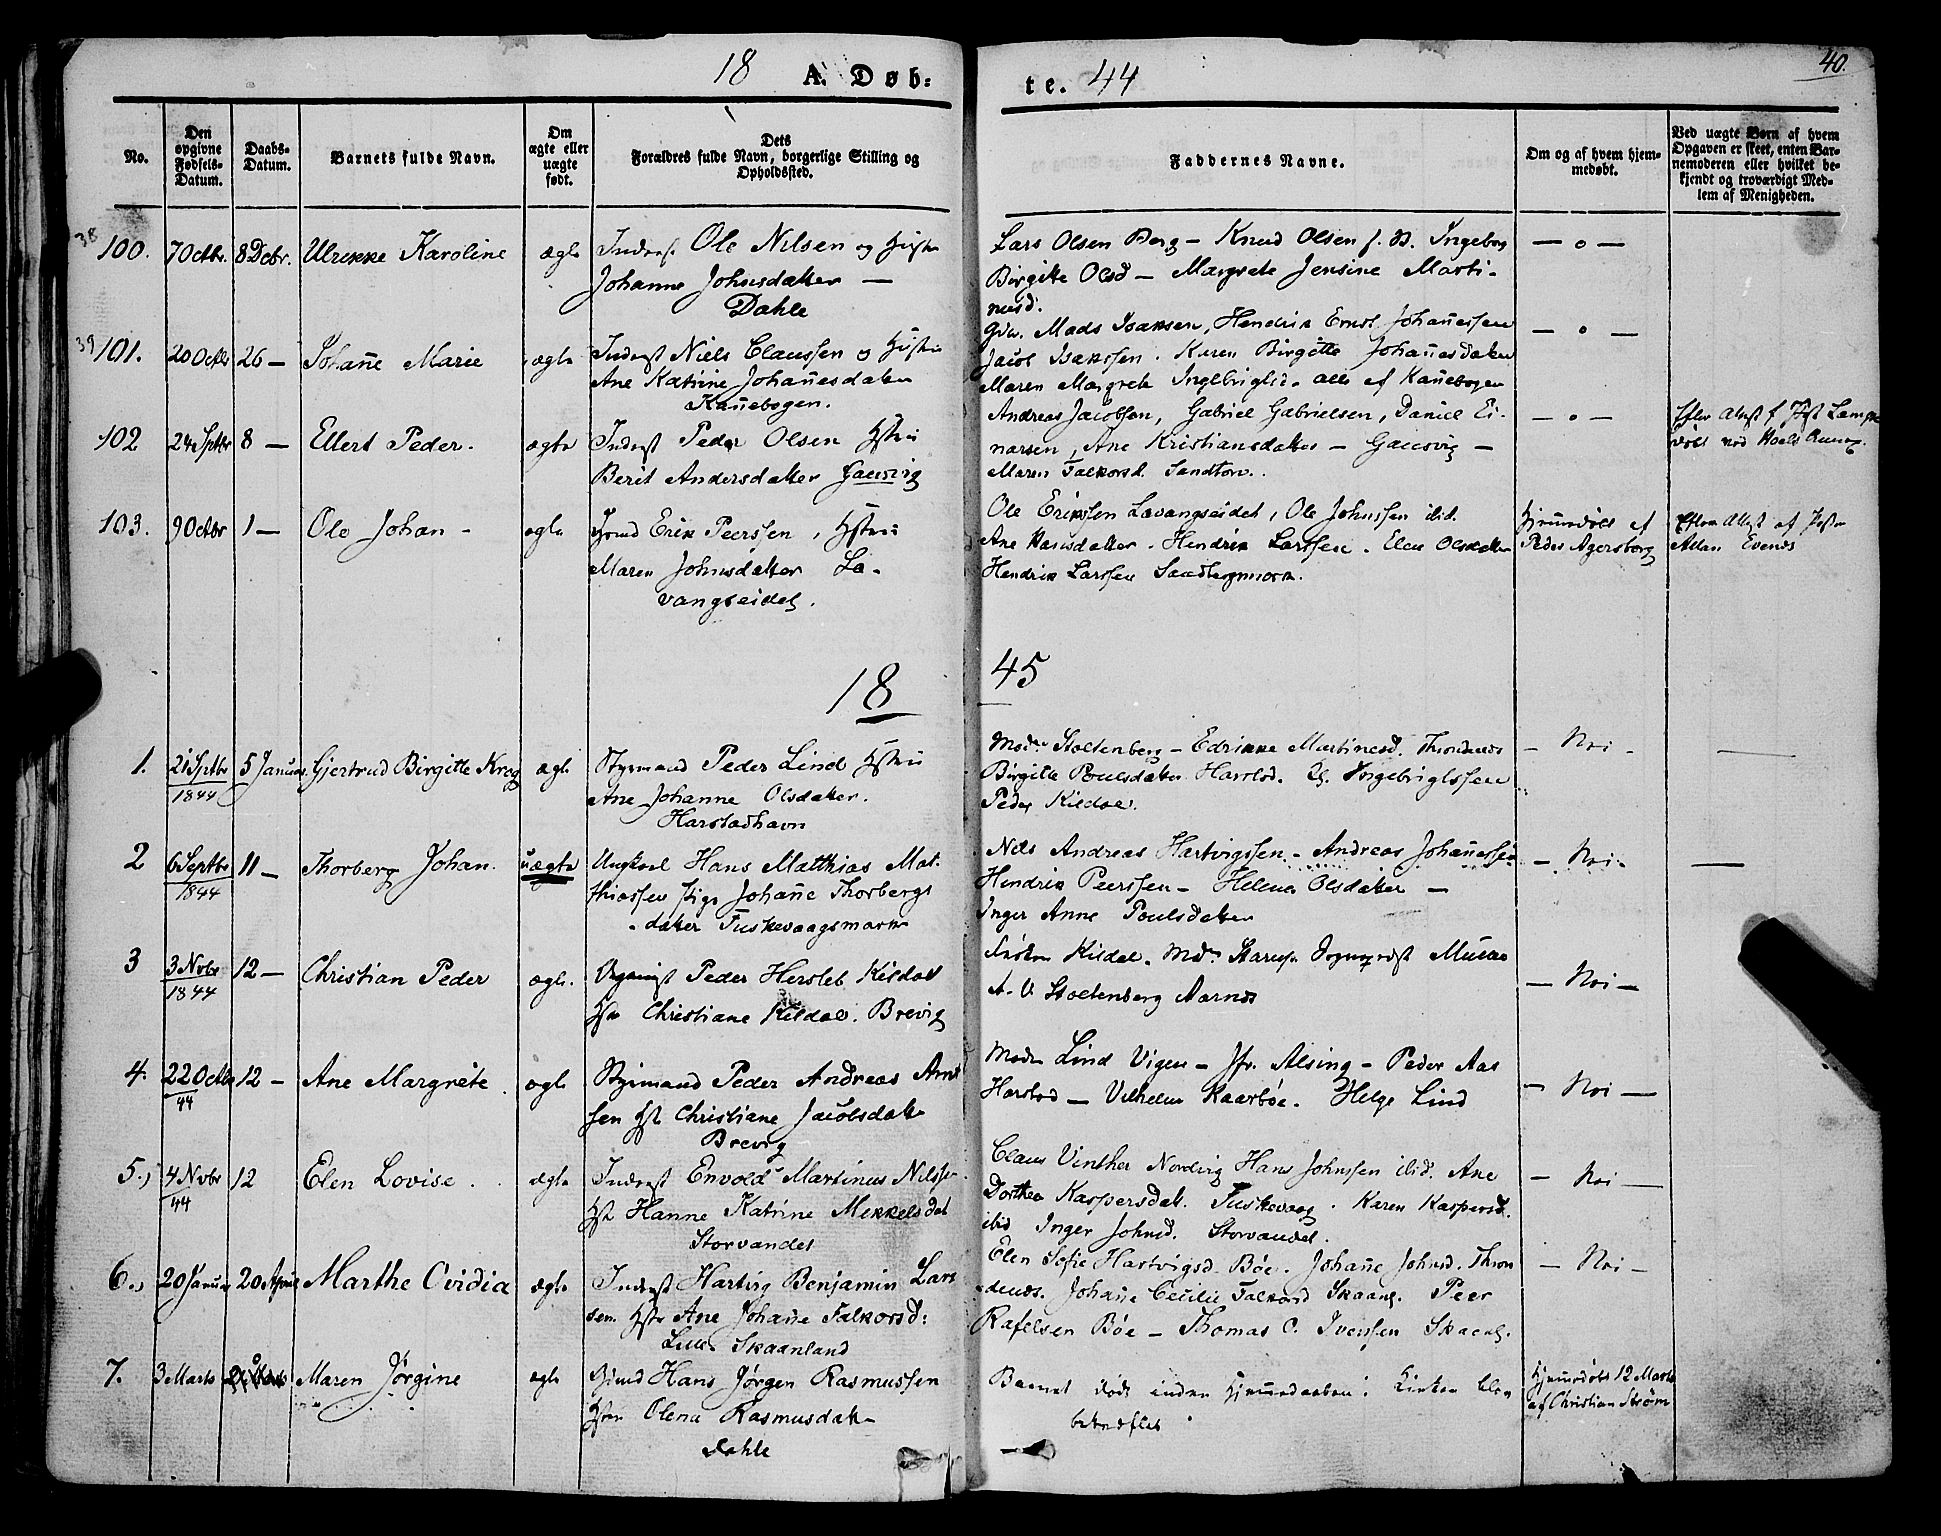 18 A. Døb: te. 44
40.
No.
Den opgivne Fødsels-Datum.
Daabs-Datum.
Barnets fulde Navn.
Om ægte eller uægte født.
Dets Forældres fulde Navn, borgerlige Stilling og Opholdssted.
Faddernes Navne.
Om og af hvem hjem-medøbt.
Ved uægte Børn af hvem
Opgaven er skeet, enten Bar-
nemoderen eller hvilket be-
kjendt og troværdigt Med-
lem af Menigheden.
38
100. 7 Octbr. 8 Dcbr. Ulrikke Karoline ægte Inderst Ole Nilsen og Hustru
Johanne Johnsdatter —
Dahle
Lars Olsen Berg — Knud Olsen Ingeborg
Birgitte Olsd — Margrete Jensine Marti-
nusd.
— o —
39
101. 20 Octbr 26 — Johan̄e Marie ægte Inderst Niels Claussen og Hustru
Ane Katrine Johan̄esdatter
Kan̄ebogen.
Mads Isaksen, Hendrik Ernst Johan̄essen
Jacob Isakssen. Karen Birgitte Johan̄esdatter
Maren Margrete Ingebrigtsd. alle af Kan̄ebogen
— o —
102 24 Sptbr 8 — Ellert Peder. ægte Inderst Peder Olsen Hstru
Berit Andersdatter Gausvig
Andreas Jacobsen, Gabriel Gabrielsen, Daniel Ei-
narsen, Ane Kristiansdatter — Gausvig —
Maren Falkorsd. Sandtorv.
— o —
103. 9 Octbr 1 — Ole Johan - ægte Gmd Erik Peerssen, Hstru
Maren Johnsdatter La-
vangseidet.
Ole Erikssen Lavangseidet, Ole Johnssen ibid.
Ane Hansdatter. Hendrik Larssen. Elen Olsdatter
Hendrik Larssen Sandbergmark.
Hjemmedøbt af
Peder Agersborg
Efter Attest af
Evenes
18 45
1. 21 Sptbr 1844 5 Januar. Gjertrud Birgitte Krog ægte Styrmand Peder Lind Hstru
Ane Johanne Olsdatter.
Harstadhavn
Madm Stoltenberg — Edrikke Martinesd. Throndenes
Birgitte Poulsdatter Harstad. Ingebrigtssen
Peder Kildal.
— Nei —
2 6 Septbr 1844 11 — Thorberg Johan. uægte Ungkarl Hans Matthias Mat-
thiassen Pige Johan̄e Thorbergs
datter Fuskevaagsmark
Nils Andreas Hartvigssen — Andreas Johan̄essen
Hendrik Peerssen — Helena Olsdatter —
Inger Anne Poulsdatter
— Nei —
3 3 Novbr 1844 12 — Christian Peder ægte. Organist Peder Hersleb Kildal
Hst Christiane Kildal. Brevig
Frøken Kildal. Madm Starup.
A. V. Stoltenberg Aarnes
— Nei —
4. 22 Octbr 44 12 — Ane Margrete. ægte Styrmand Peder Andreas Arnt
sen Hst Christiane Jacobsdatter
Brevig
Madm Lind Vigen — Jfr. Alsing — Peder Aas
Harstad — Vilhelm Kaarbøe. Helge Lind
— Nei —
5. 4 Novbr 44 12 Elen Lovise. ægte Inderst Envold Martinus Nilssen
Hst Hanne Katrine Mekkelsdat
Storvandet
Claus Vinther Nordvig Hans Johnssen ibid. Ane
Dorthea Kaspersdat. Fuskevaag. Karen Kaspersd.
ibid Inger Johnsd. Storvandet.
— Nei —
6. 20 Januar 20 April Marthe Ovidia ægte Inderst Hartvig Benjamin Lars
sen Hstr Ane Johan̄e Falkorsd:
Lille Skaanland
Elen Sofie Hartvigsd. Bøe. Johan̄e Johnsd. Thron
denes. Johan̄e Cecilie Falkorsd Skaanl. Peer
Rafelsen Bøe — Thomas C. Ivenssen Skaanl.
— Nei —
7. 3 Marts Maren Jørgine ægte Gmd Hans Jørgen Rasmussen
Hstru Olena Rasmusdat-
Dahle
Barnet døde inden Hjemmedaaben i Kirken blev
bekræftet
Hjemmedøbt 12 Marts
af Christian Strøm